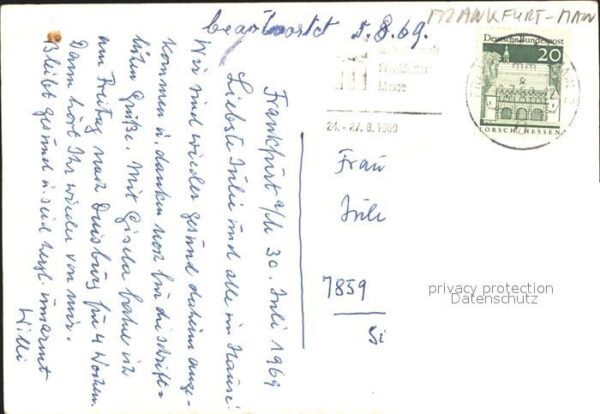 beantwortet 5.8.69.
FRANKFURT-MAIN
Deutsche Bundespost
20
LORSCH/HESSEN
Messe
24.-27.8.1969
Frankfurt a/M 30. Juli 1969
Liebste Julie und alle im Hause!
Wir sind wieder gesund daheim ange-
kommen u. danken noch für die schrift-
lichen Grüße. Mit Gisela fahre ich
am Freitag nach Duisburg für 4 Wochen.
Dann hört Ihr wieder von mir.
Bleibt gesund u. seid herzl. umarmt
Willi
Frau
Juli
7859
Ei
privacy protection
Datenschutz